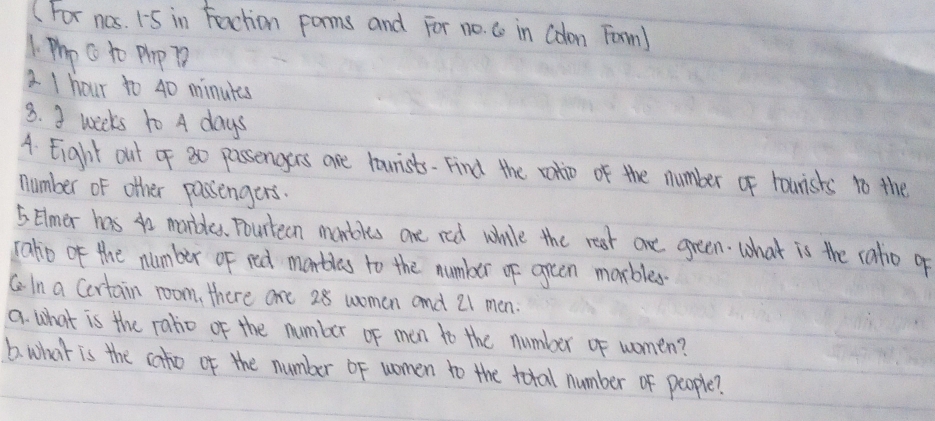 (For nos. 1-5 in fraction forms and For no. 6 in Colon Form)
1. Php 6 to Php
2 1 hour to 40 minutes
3. 2 weeks to 4 days
4. Eight out of 30 passengers are tourists. Find the ratio of the number of tourists to the
number of other passengers.
5 Elmer has 42 marbles. Fourteen marbles are red while the rest are green. What is the ratio of
ratio of the number of red marbles to the number of green marbles.
6. In a Certain room, there are 28 women and 21 men.
a. What is the ratio of the number of men to the number of women?
b. what is the ratio of the number of women to the total number of people?